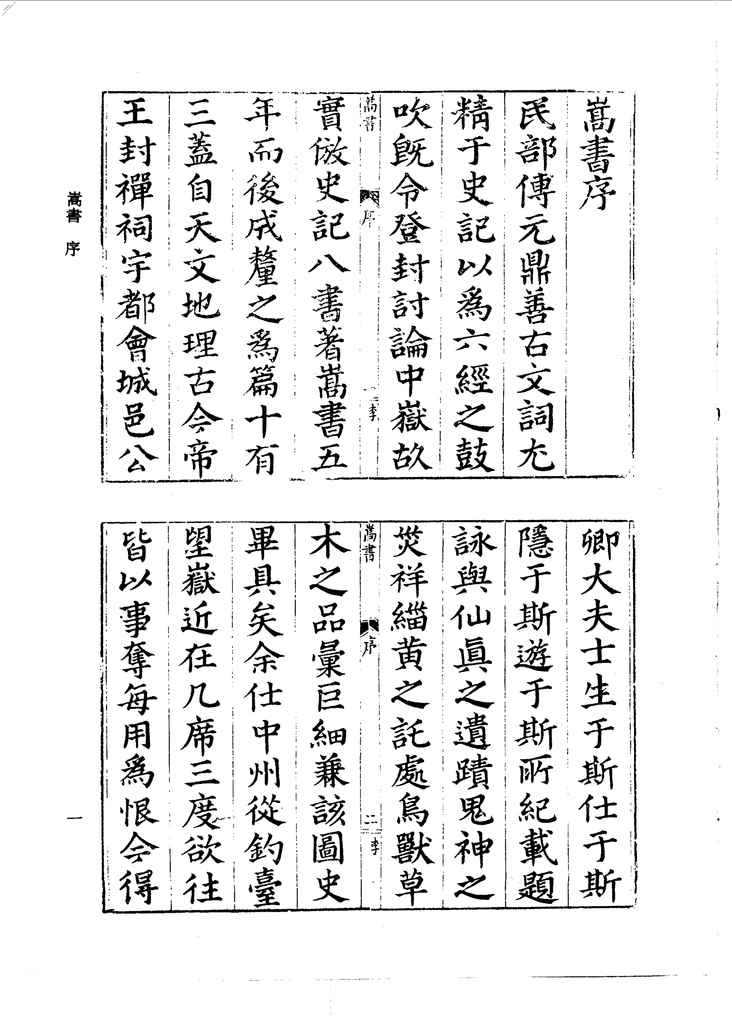 嵩書序
民部傅元鼎善古文詞尤
精于史記以爲六經之鼓
吹旣令登封討論中嶽故
嵩書
序
一
李
實倣史記八書著嵩書五
年而後成釐之爲篇十有
三蓋自天文地理古今帝
王封禪祠宇都會城邑公
卿大夫士生于斯仕于斯
隱于斯遊于斯所紀載題
詠與仙眞之遺蹟鬼神之
災祥緇黃之託處鳥獸草
嵩書
序
二
李
木之品彙巨細兼該圖史
畢具矣余仕中州從釣臺
望嶽近在几席三度欲往
皆以事奪每用爲恨今得
嵩書 序
一